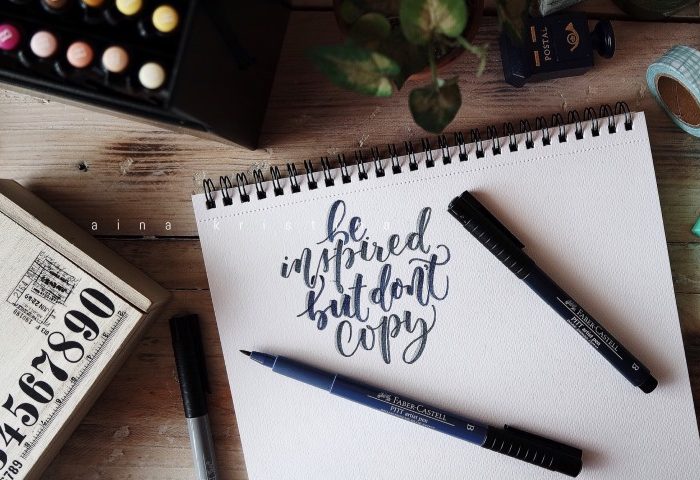 POSTAL
aina krist
be
inspired
but don't
copy
FABER-CASTELL
PITT artist pen
B
FABER-CASTELL
PITT artist pen
B
4567890
789